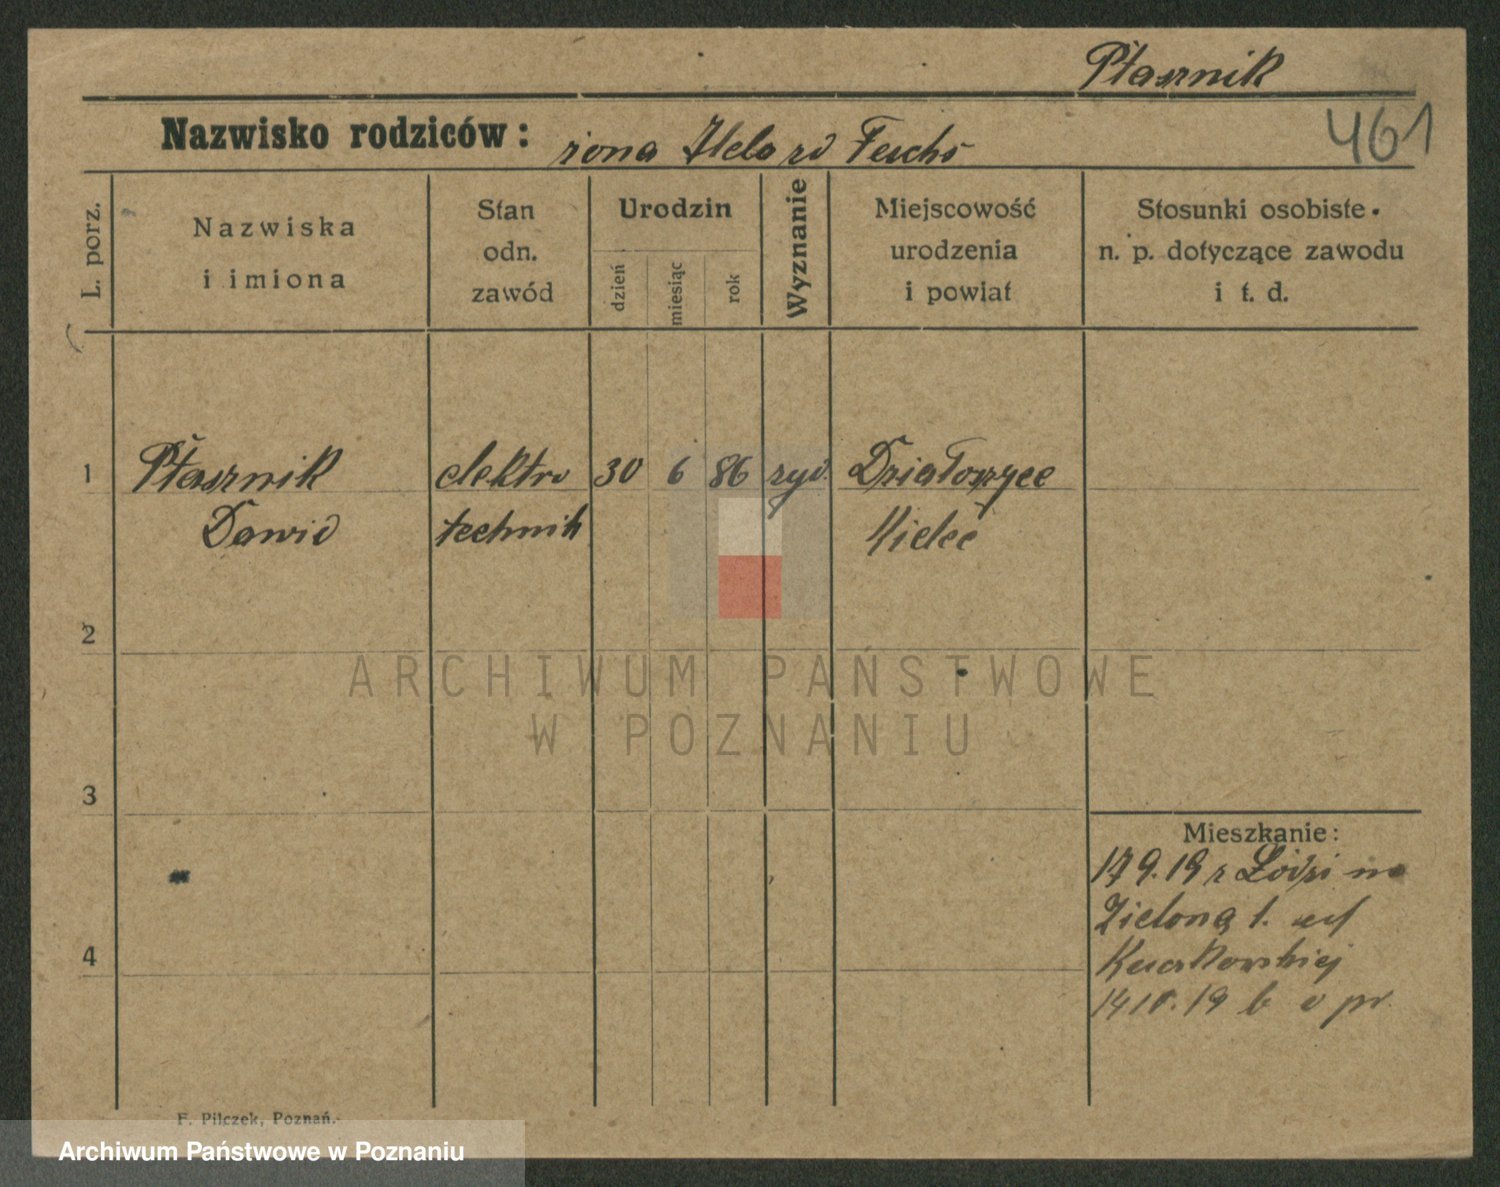 Ptasznik
461
Nazwisko rodziców: żona Hela zd Fuchs
L. porz.
Nazwiska
i imiona
Stan
odn.
zawód
Urodzin
dzień
miesiąc
rok
Wyznanie
Miejscowość
urodzenia
i powiat
Stosunki osobiste
n. p. dotyczące zawodu
i t. d.
1 Ptasznik elektro 30 6 86 żyd. Działoszyce
Dawid technik Kielce
2
ARCHIWUM PAŃSTWOWE
W POZNANIU
3
Mieszkanie:
17 9. 19 z Łodzi na
Zieloną 1.
4
19 b o pr.
F. Pilczek, Poznań.
Archiwum Państwowe w Poznaniu